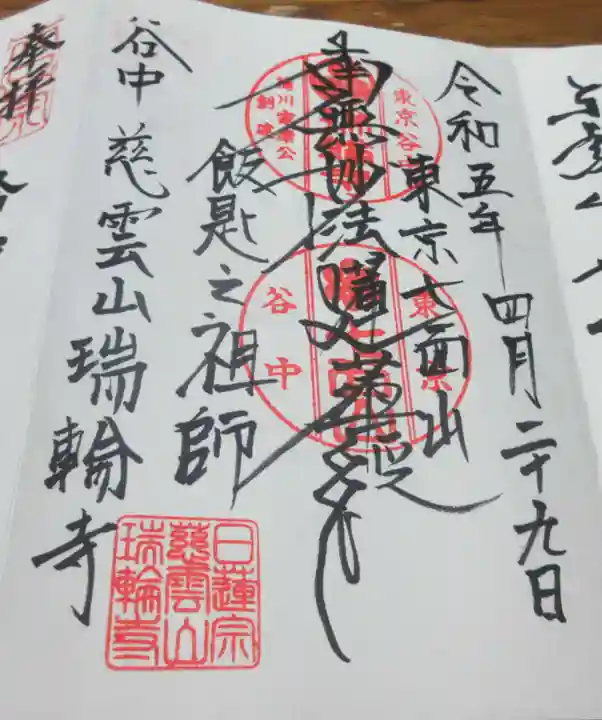 令和五年四月二十九日
東京七面山
南無妙法蓮華経
飯匙之祖師
谷中 慈雲山瑞輪寺
奉拝
東京谷中
徳川家康公
創建
東京
谷中
日蓮宗
慈雲山
瑞輪寺